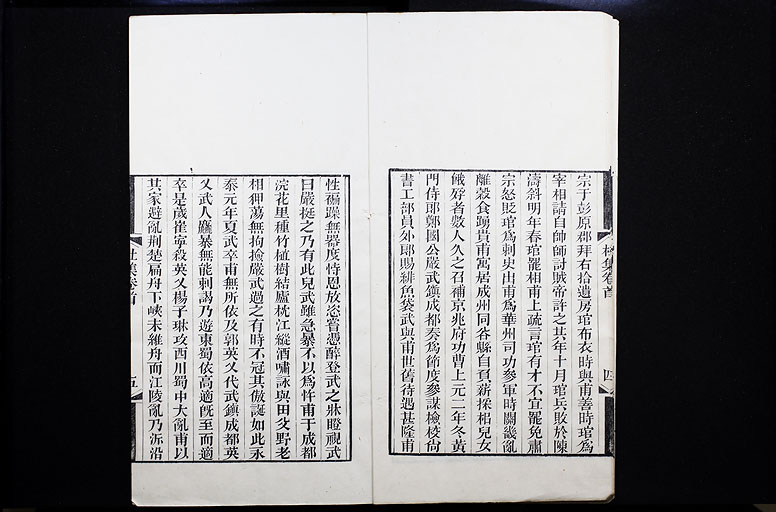 宗于彭原郡拜右拾遺房琯布衣時與甫善時琯爲
宰相請自帥師討賊帝許之其年十月琯兵敗於陳
濤斜明年春琯罷相甫上疏言琯有才不宜罷免肅
宗怒貶琯爲刺史出甫爲華州司功參軍時關畿亂
離穀食踴貴甫寓居成州同谷縣自負薪採梠兒女
餓殍者數人久之召補京兆府功曹上元二年冬黃
門侍郎鄭國公嚴武鎭成都奏爲節度參謀檢校尙
書工部員外郎賜緋魚袋武與甫世舊待遇甚隆甫
杜集卷首
四
性褊躁無器度恃恩放恣嘗憑醉登武之牀瞪視武
曰嚴挺之乃有此兒武雖急暴不以爲忤甫于成都
浣花里種竹植樹結廬枕江縱酒嘯詠與田父野老
相狎蕩無拘撿嚴武過之有時不冠其傲誕如此永
泰元年夏武卒甫無所依及郭英乂代武鎭成都英
乂武人麤暴無能刺謁乃遊東蜀依高適旣至而適
卒是歲崔寧殺英乂楊子琳攻西川蜀中大亂甫以
其家避亂荆楚扁舟下峽未維舟而江陵亂乃泝沿
杜集卷首
五